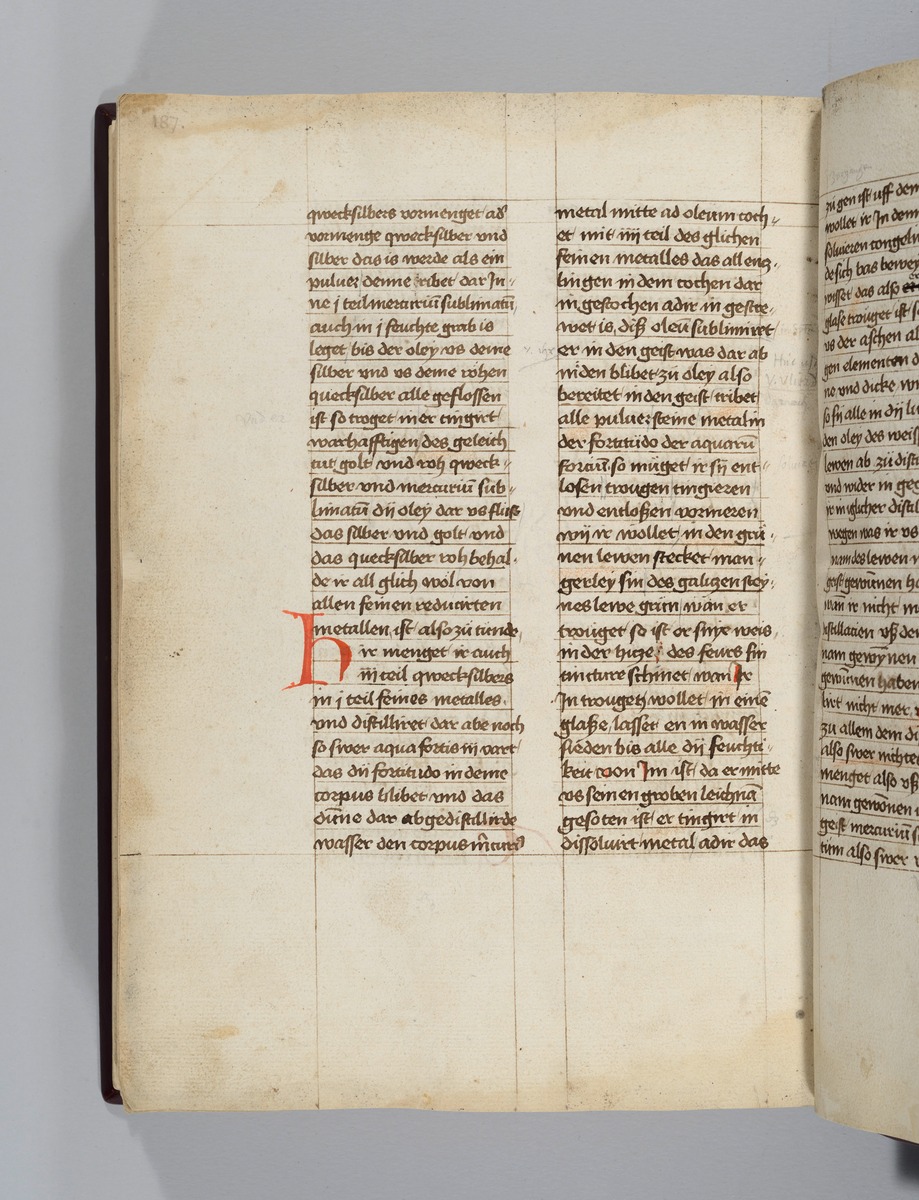 187.
qwecksilbers vormenget als
vormenge qwecksilber vnd
silber das is werde als ein
puluer denne ribet dar Jn⸗
ne j teil mercuriū sublimatū
auch in j feuchte grab is
leget bis der oley vs deme
silber vnd vs deme rohen
quecksilber alle geflossen
ist so troget in er tingirt
warhafftigen des geleich
tut golt vnd roh qweck⸗
silber vnd mercuriū sub⸗
limatū dÿ oley dar vs fliss
das silber vnd golt vnd
das quecksilber roh behal⸗
de ir all glich wol von
allen feinen reducirten
metallen ist also zü tunde
Hir menget ir auch
iiij teil qwecksilbers
in j teil feines metalles
vnd distilliret dar abe noch
so swer aqua fortis in vort
das dÿ fortitudo in deme
corpus blibet vnd das
dünne dar abgedistillirde
wasser den corpus
metal mitte ad oleum coch⸗
et mit iiij teil des glichen
feinen metalles das
lingen in dem cochen dar
in gestochen adir in gestre⸗
wet is, diß oleū sublimiret
er in den geist was dar ab
niden blibet zü oley also
bereitet in den geist tribet
alle puluer steine metal in
der fortitüdo der aquarū
forciū so müget ir sÿ ent⸗
losen trougen tingieren
vnd entloßen vormeren
wÿ ir wollet in den grü⸗
nen lewen stecket man⸗
gerley sin des galitzen stey⸗
nes lewe grün wan er
trouget so ist er snye weis
in der hitze des feurs sin
tincture schinet wan ir
Jn trougen wollet in einē
glaße, lasset en in wasser
sieden bis alle dÿ feuchti⸗
keit von Jm ist, da er mitte
vs seinen groben leichnā
gesoten ist er tingirt in
dissoluirt metal adir das
zü gen ist uff dem
wollet ir Jn dem
soluieren
de sich bas bewey
wisset das also
glase trouget ist
vs der aschen al
gen elementen d
ne vnd dicke
so sÿ alle in dÿ
den oley des weiss
lewen ab zü disti
vnd wider in
ir iglicher distil
wegen was ir vs
nam des lewen
geist gewünnen
wan ir nicht
distillacien vß der
nam gewynnen
gewünnen haben
nicht mer
zü allem dem
also swer
menget also vß
nam gewonnen
geist mercuriū
tum also swer